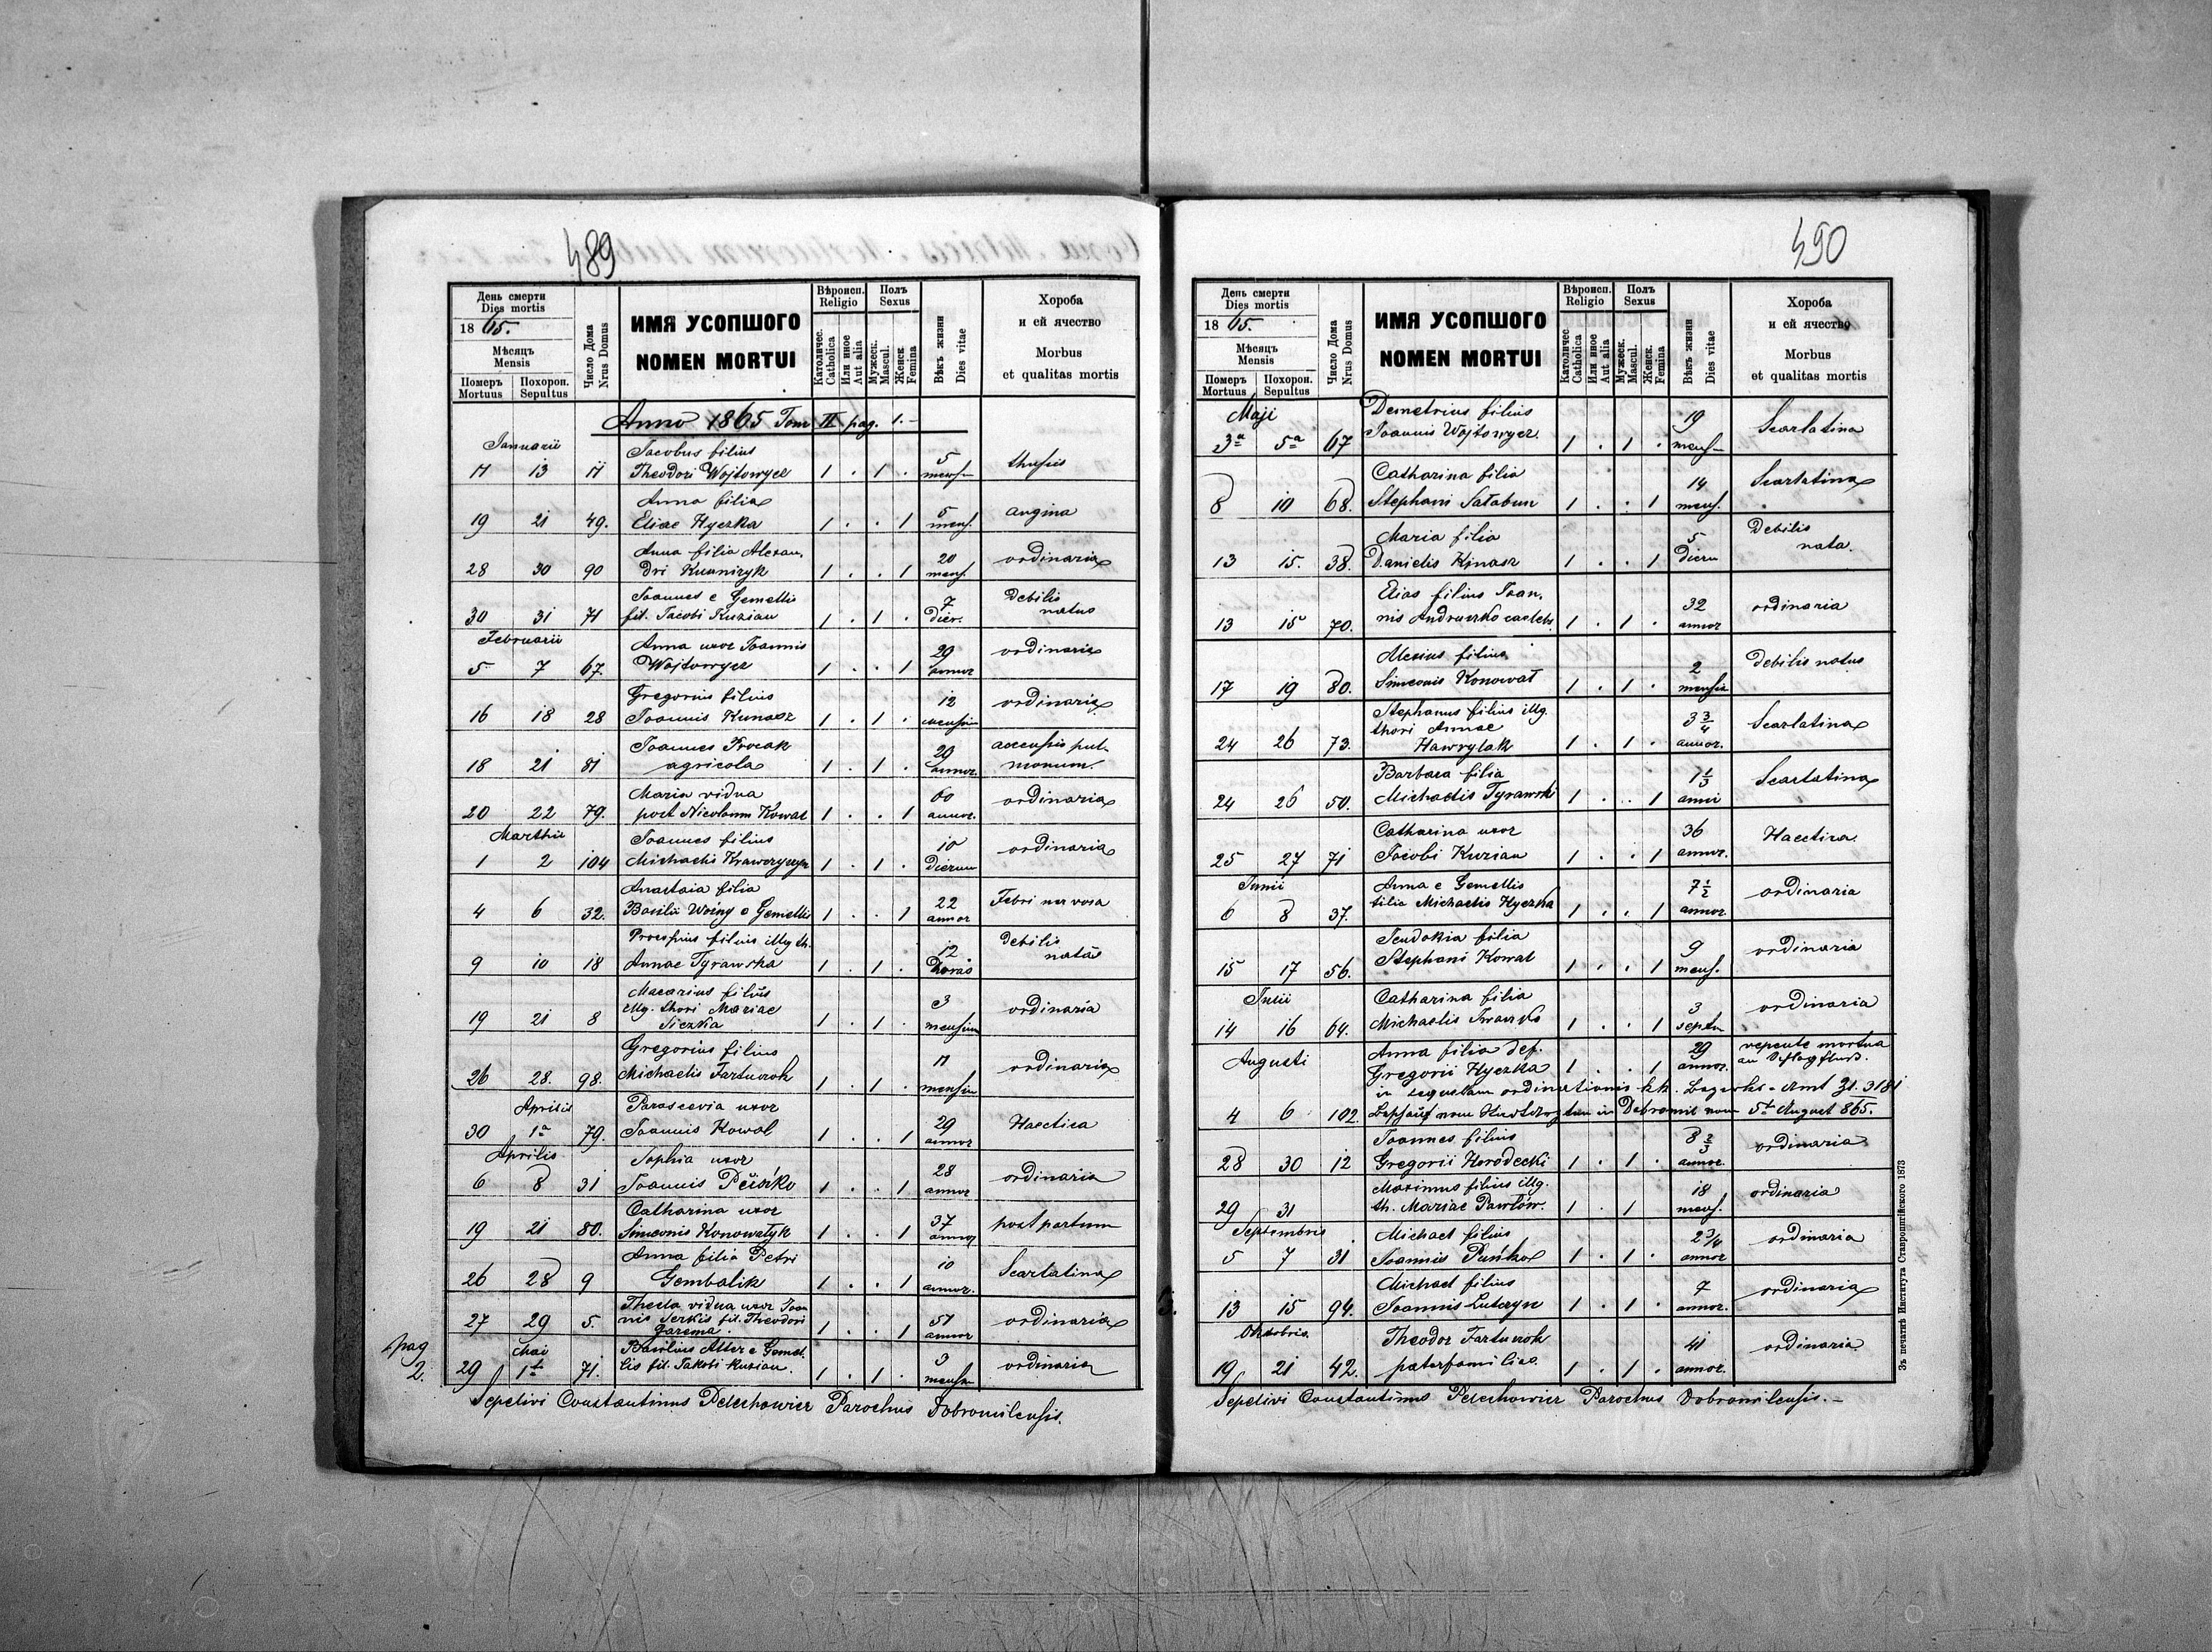 489
День смерти
Dies mortis
1865.
Мѣсяцъ
Mensis
Померъ Похорон.
Mortuus Sepultus
Число Дома
Nrus Domus
ИМЯ УСОПШОГО
NOMEN MORTUI
Вѣроисп.
Religio
Католичес.
Catholica
Или иное
Aut alia
Полъ
Sexus
Мужеск.
Mascul.
Женск.
Femina
Вѣкъ жизни
Dies vitae
Хороба
и ей ячество
Morbus
et qualitas mortis
Anno 1865 Tom II pag. 1.-
Januarii Jacobus filius
11 13 11 Theodori Wojtowycz 1 . 1 . 5 mens.
Anna filia
19 21 49. Eliae Hyczka 1 . . 1 5 mens. angina
Anna filia Alexan,
28 30 90 dri 1 . . 1 20 mens. ordinaria
Joannes e Gemellis
30 31 71 fil. Jacobi Kuzian 1 . 1 . 7 dier. debilis natus
Februarii Anna uxor Joannis
5 7 67. Wojtowycz 1 . . 1 29 annor ordinaria
Gregorius filius
16 18 28 Joannis Kunasz 1 . 1 . 12 mensium ordinaria
Joannes Procak
18 21 81 agricola 1 . 1 . 29 annor. accensis pulmonum.
Maria vidua
20 22 79. post Nicolaum Kowal 1 . . 1 60 annor. ordinaria
Martii Joannes filius
1 2 104 Michaelis Krawczyszyn 1 . 1 . 10 dierum ordinaria
Anastaia filia
4 6 32. Basilii e Gemellis 1 . . 1 22 annor Febri nervosa
filius illg th.
9 10 18 Annae Tyrawska 1 . 1 . 12 horas debilis natus
Macarius filius
illg. thori Mariae
19 21 8 1 . 1 . 3 mensium ordinaria
Gregorius filius
26 28. 98. Michaelis Fartuszok 1 . 1 . 11 mensium ordinaria
Aprilis Parascevia uxor
30 1a 79. Joannis Kowal 1 . . 1 29 annor Haectica
Aprilis Sophia uxor
6 8 31 Joannis 1 . . 1 28 annor ordinaria
Catharina uxor
19 21 80. Simeonis Konowałyk 1 . . 1 37 annor post partum
Anna filia Petri
26 28 9 Gembalik 1 . . 1 10 annor. Scarlatina
Thecla vidua uxor Joan
nis Serkis fil. Theodori
27 29 5. 1 . . 1 51 annor ordinaria
pag
2.
Mai Basilius Alter e Gemel.
29 1a 71. lis fil. Jakobi Kuzian. 1 . 1 . 3 mensium ordinaria
Sepelivi Constantinus Pelechowicz Parochus Dobromilensis.
490
День смерти
Dies mortis
1865.
Мѣсяцъ
Mensis
Померъ Похорон.
Mortuus Sepultus
Число Дома
Nrus Domus
ИМЯ УСОПШОГО
NOMEN MORTUI
Вѣроисп.
Religio
Католичес.
Catholica
Или иное
Aut alia
Полъ
Sexus
Мужеск.
Mascul.
Женск.
Femina
Вѣкъ жизни
Dies vitae
Хороба
и ей ячество
Morbus
et qualitas mortis
Maji Demetrius filius
3a 5a 67 Joannis Wojtowycz. 1 . 1 . 19 mens. Scarlatina
Catharina filia
8 10 68. Stephani Sałabun 1 . . 1 14 mens. Scarlatina
Maria filia
13 15. 38. Danielis Kjnasz 1 . . 1 5 dieru Debilis nata.
Elias filius Joan,
13 15 70. nis Andruszko caeleb. 1 . 1 . 32 annor ordinaria
Alexius filius
17 19 80. Simeonis Konował 1 . 1 . 2 mensiu debilis natus
Stephanus filius illg.
thori Annae
24 26 73. Hawrylak 1 . 1 . 3 3/4 annor. Scarlatina
Barbara filia
24 26 50. Michaelis Tyrawski 1 . . 1 1 1/3 anni Scarlatina
Catharina uxor
25 27 71 Jacobi Kuzian 1 . . 1 36 annor. Haectica
Junii Anna e Gemellis
6 8 37. filia Michaelis Hyczka 1 . . 1 7 1/2 annor ordinaria
Jeudokia filia
15 17 56. Stephani Kowal 1 . . 1 9 mens. ordinaria
Julii Catharina filia
14 16 64. Michaelis 1 . . 1 3 septm ordinaria
Augusti Anna filia def. 29 repente mortua
Gregorii Hyczka 1 . . 1 annor. an Schlagfluss.
in sequelam ordinationis k.k. Bezirks-Amt Zl. 3181
4 6 102. in Dobromil vom 5t August 865.
Joannes filius
28 30 12 Gregorii Horodecki 1 . 1 . 8 2/3 annor. ordinaria
Maximus filius illg.
29 31 th. Mariae Pawlów. 1 . 1 18 mens. ordinaria
Septembris Michael filius
5 7 31 Joannis Puńko 1 . 1 . 2 3/4 annor ordinaria
Michael filius
13 15 94. Joannis Luteryn 1 . 1 . 7 annor. ordinaria
Oktobris. Theodor Fartuszok
19 21 42. paterfamilias. 1 . 1 . 41 annor. ordinaria
Sepelivi Constantinus Pelechowicz Parochus Dobromilensis.-
Зъ печатнѣ Института Ставропигійского 1873